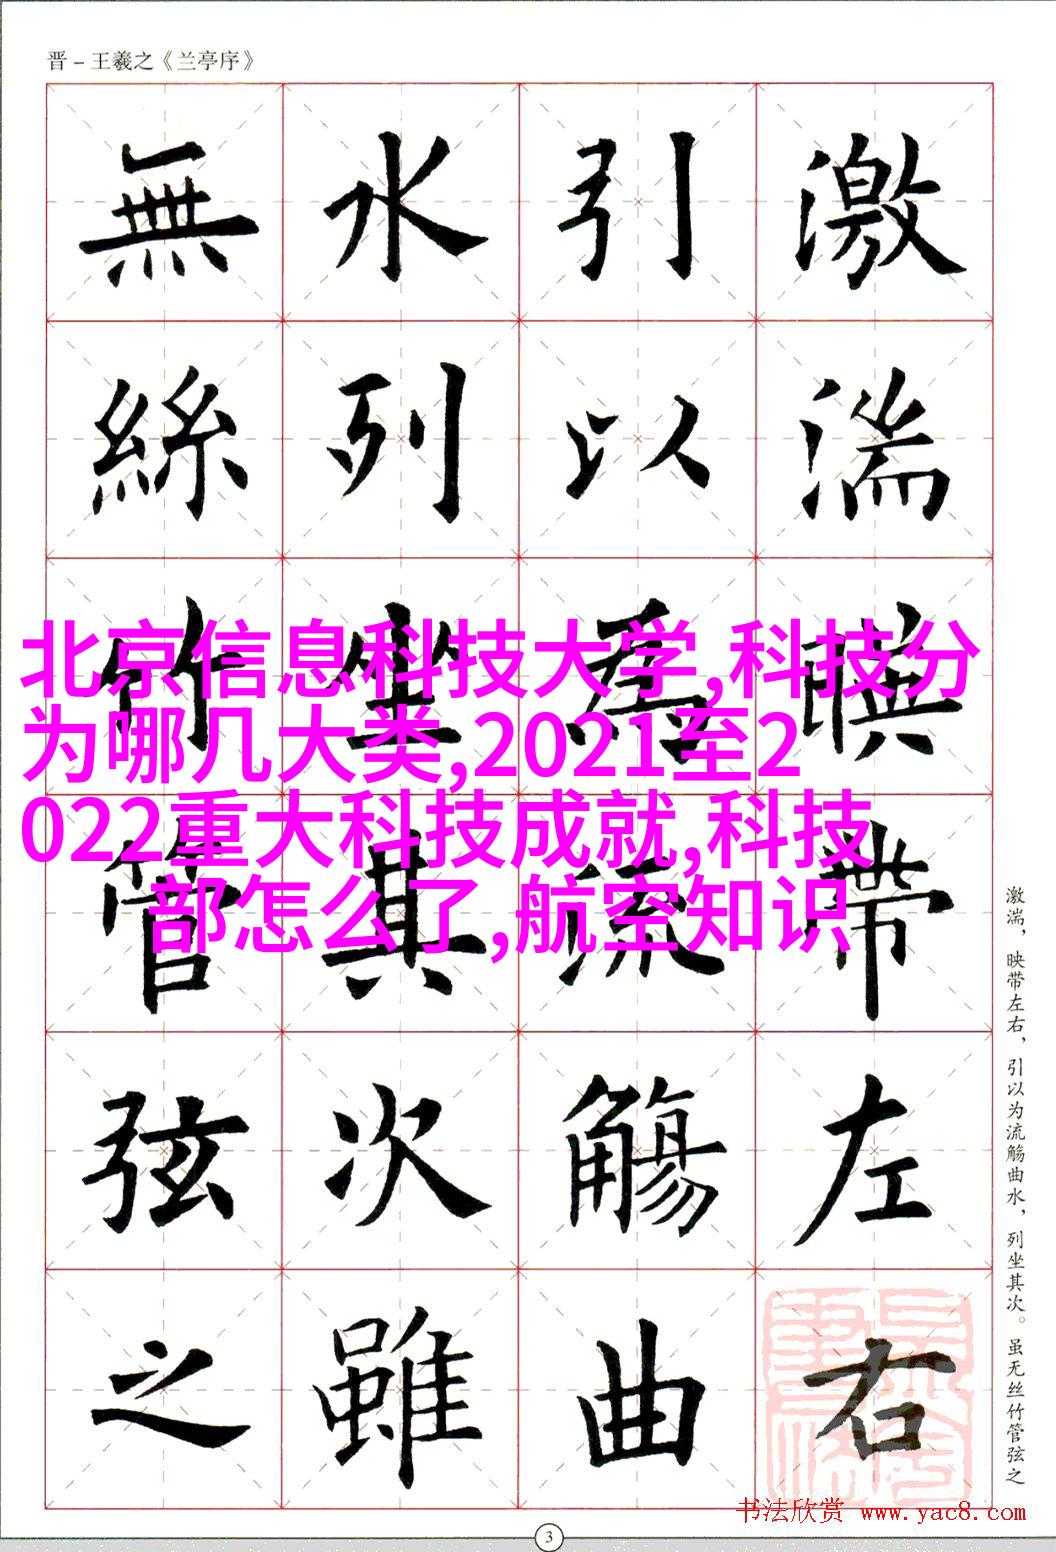 晋－王羲之《兰亭序》
激湍暎帶左右
引以為流觴曲
水列坐其次雖
無絲竹管弦之
激湍，映带左右，引以为流觞曲水，列坐其次。虽无丝竹管弦之
北京信息科技大学,科技分
为哪几大类,2021至2
022重大科技成就,科技
部怎么了,航空知识
书法欣赏 www.yac8.com
3